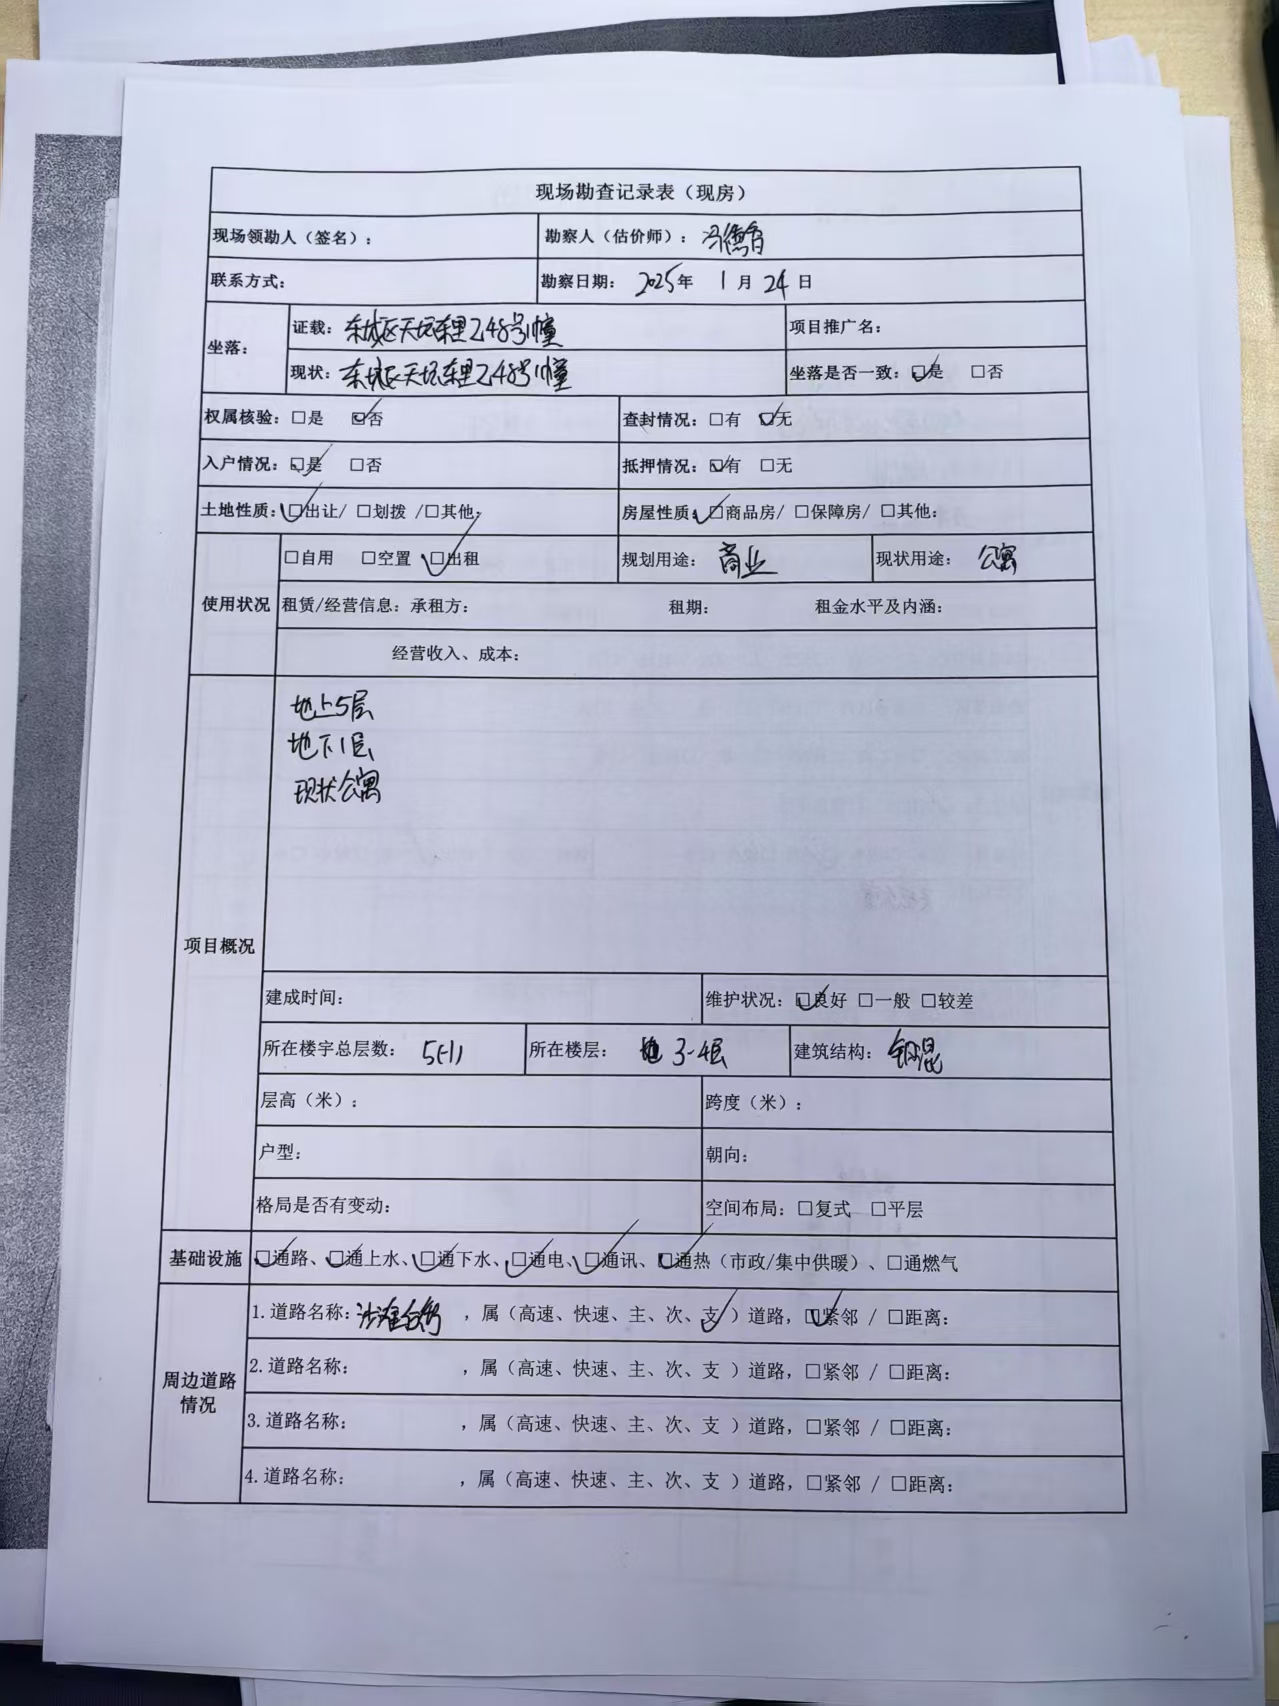 现场勘查记录表（现房）
现场领勘人（签名）： 勘察人（估价师）：
联系方式： 勘察日期： 2025年 1月 24日
坐落： 证载：东城区天坛东里乙48号1幢 项目推广名：
现状：东城区天坛东里乙48号1幢 坐落是否一致：☑是 □否
权属核验：□是 ☑否 查封情况：□有 ☑无
入户情况：☑是 □否 抵押情况：☑有 □无
土地性质：☑出让/ □划拨 /□其他： 房屋性质：☑商品房/ □保障房/ □其他：
使用状况 □自用 □空置 ☑出租 规划用途： 商业 现状用途： 公寓
租赁/经营信息：承租方： 租期： 租金水平及内涵：
经营收入、成本：
项目概况
地上5层
地下1层
现状公寓
建成时间： 维护状况：☑良好 □一般 □较差
所在楼宇总层数： 5(-1) 所在楼层： 3-4层 建筑结构： 钢混
层高（米）： 跨度（米）：
户型： 朝向：
格局是否有变动： 空间布局：□复式 □平层
基础设施 ☑通路、☑通上水、☑通下水、☑通电、☑通讯、☑通热（市政/集中供暖）、□通燃气
周边道路情况
1.道路名称： ，属（高速、快速、主、次、支✓）道路，☑紧邻 / □距离：
2.道路名称： ，属（高速、快速、主、次、支 ）道路，□紧邻 / □距离：
3.道路名称： ，属（高速、快速、主、次、支 ）道路，□紧邻 / □距离：
4.道路名称： ，属（高速、快速、主、次、支 ）道路，□紧邻 / □距离：